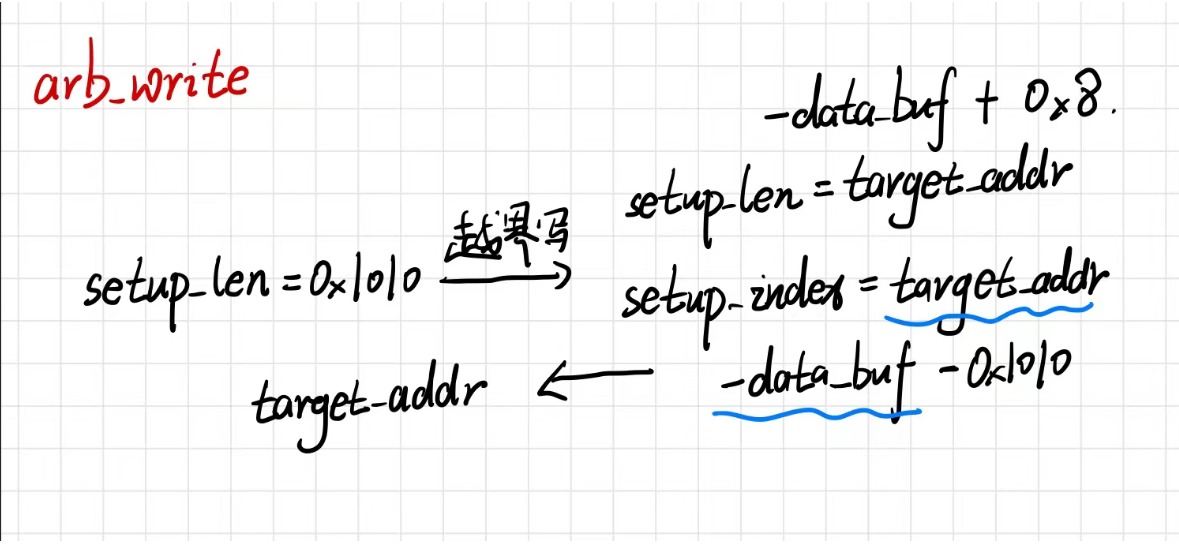 arb_write
-data_buf + 0x8.
setup_len = target_addr
越界写
setup_len = 0x1010
setup_index = target_addr
-data_buf - 0x1010
target_addr